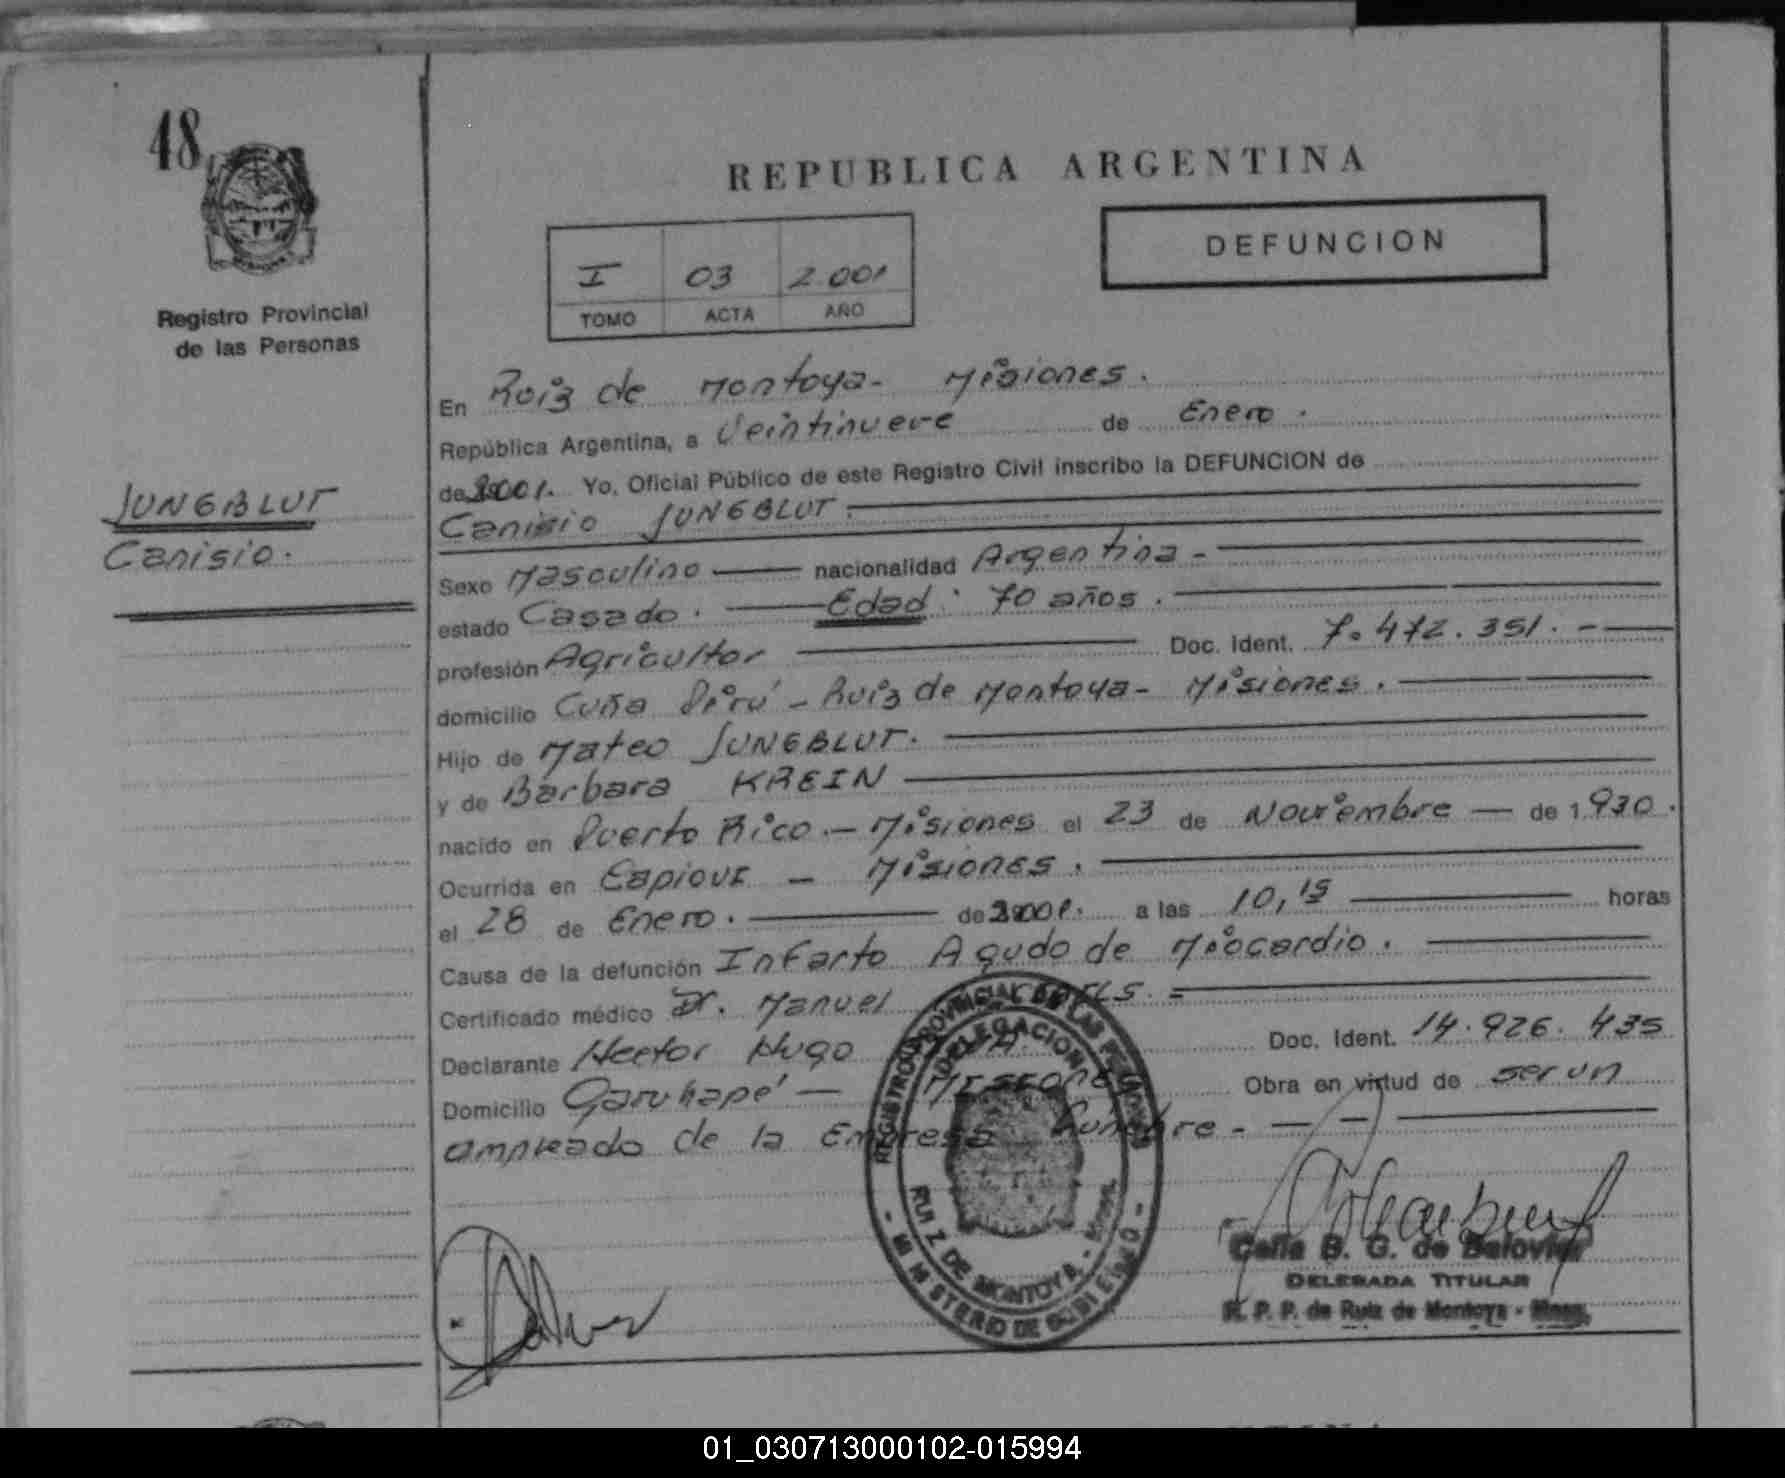 48
Registro Provincial
de las Personas
JUNGBLUT
Canisio.
REPUBLICA ARGENTINA
I 03 2.001
TOMO ACTA AÑO
DEFUNCION
En Ruiz de Montoya- Misiones.
República Argentina, a Veintinueve de Enero.
de 2001. Yo, Oficial Público de este Registro Civil inscribo la DEFUNCION de
Canisio JUNGBLUT.
Sexo Masculino nacionalidad Argentina-
estado Casado. Edad: 70 años.
profesión Agricultor Doc. Ident. 7.472.351.-
domicilio Cuña Pirú - Ruiz de Montoya- Misiones.
Hijo de Mateo JUNGBLUT.
y de Bárbara KREIN
nacido en Puerto Rico.- Misiones el 23 de Noviembre de 1.930.
Ocurrida en Capioví - Misiones.
el 28 de Enero. de 2001. a las 10,15 horas
Causa de la defunción Infarto Agudo de Miocardio.
Certificado médico Dr. Manuel
Declarante Hector Hugo Doc. Ident. 14.926.435
Domicilio Garuhapé - Misiones Obra en virtud de ser un
empleado de la Empresa Fúnebre-
REGISTRO PROVINCIAL DE LAS PERSONAS
DELEGACION
RUIZ DE MONTOYA - Mnes.
- MINISTERIO DE GOBIERNO -
B. G. de
DELEGADA TITULAR
R. P. P. de Ruiz de Montoya - Mnes.
01_030713000102-015994